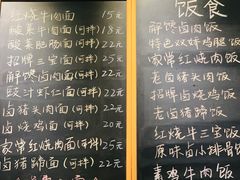 红烧牛肉面 15元
酸菜牛肉面(可拌) 18元
酸菜肥肠面(可拌) 22元
招牌三宝面(可拌) 25元
解馋卤肉面(可拌) 22元
豉汁虾仁面(可拌) 22元
卤猪头肉面(可拌) 22元
卤烧鸡面(可拌) 20元
家常红烧肉面(可拌) 25元
老卤猪蹄面(可拌) 22元
饭食
解馋卤肉饭
特色双娇鸡腿饭
家常红烧肉饭
老卤猪头肉饭
招牌卤鸡肉饭
老卤猪蹄饭
红烧牛三宝饭
原味卤小排骨饭
素鸡牛肉饭